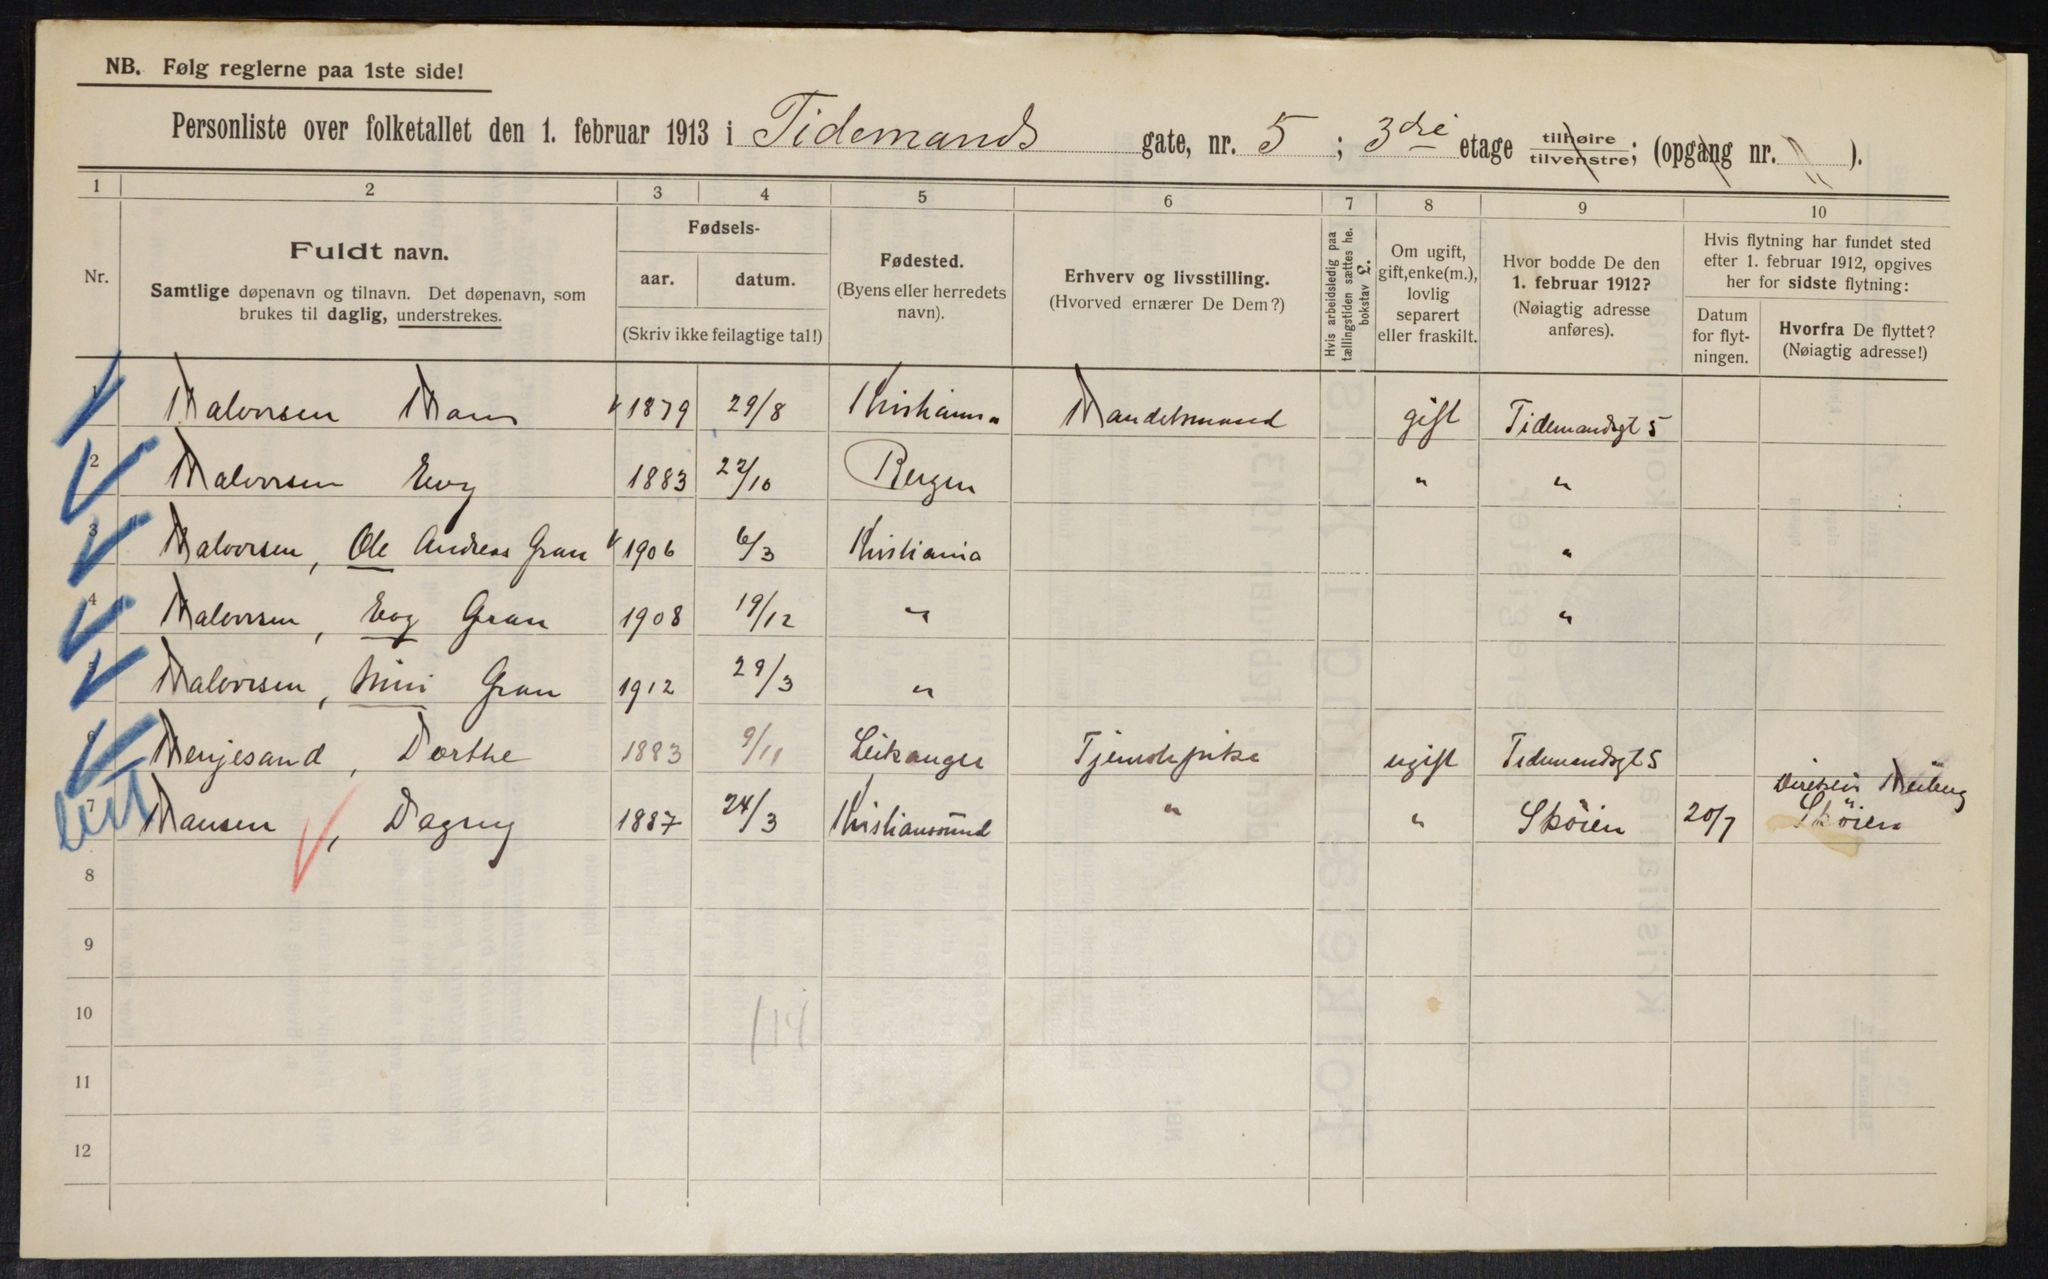 NB. Følg reglerne paa 1ste side!
Personliste over folketallet den 1. februar 1913 i Tidemands gate, nr. 5 ; 3die etage tilhøire/tilvenstre; (opgang nr. ).
1 2 3 4 5 6 7 8 9 10
Nr.
Fuldt navn.
Samtlige døpenavn og tilnavn. Det døpenavn, som
brukes til daglig, understrekes.
Fødsels-
aar. datum.
(Skriv ikke feilagtige tal!)
Fødested.
(Byens eller herredets
navn).
Erhverv og livsstilling.
(Hvorved ernærer De Dem?)
Hvis arbeidsledig paa
tællingstiden sættes he.
bokstav L.
Om ugift,
gift, enke(m.),
lovlig
separert
eller fraskilt.
Hvor bodde De den
1. februar 1912?
(Nøiagtig adresse
anføres).
Hvis flytning har fundet sted
efter 1. februar 1912, opgives
her for sidste flytning:
Datum
for flyt-
ningen.
Hvorfra De flyttet?
(Nøiagtig adresse!)
1 Halvorsen Hans 1879 29/8 Kristiania Handelsmand gift Tidemandsgt 5
2 Halvorsen Evy 1883 22/10 Bergen " "
3 Halvorsen, Ole Andreas Gran 1906 6/3 Kristiania "
4 Halvorsen, Evy Gran 1908 19/12 " "
5 Halvorsen, Mimi Gran 1912 29/3 "
6 Henjesand, Dorthe 1883 9/11 Leikanger Tjenestepike ugift Tidemandsgt 5
7 Hansen, Dagny 1887 24/3 Kristianssund " " Sköien 20/7 Direktör Heiberg
Sköien
8
9
10
11
12